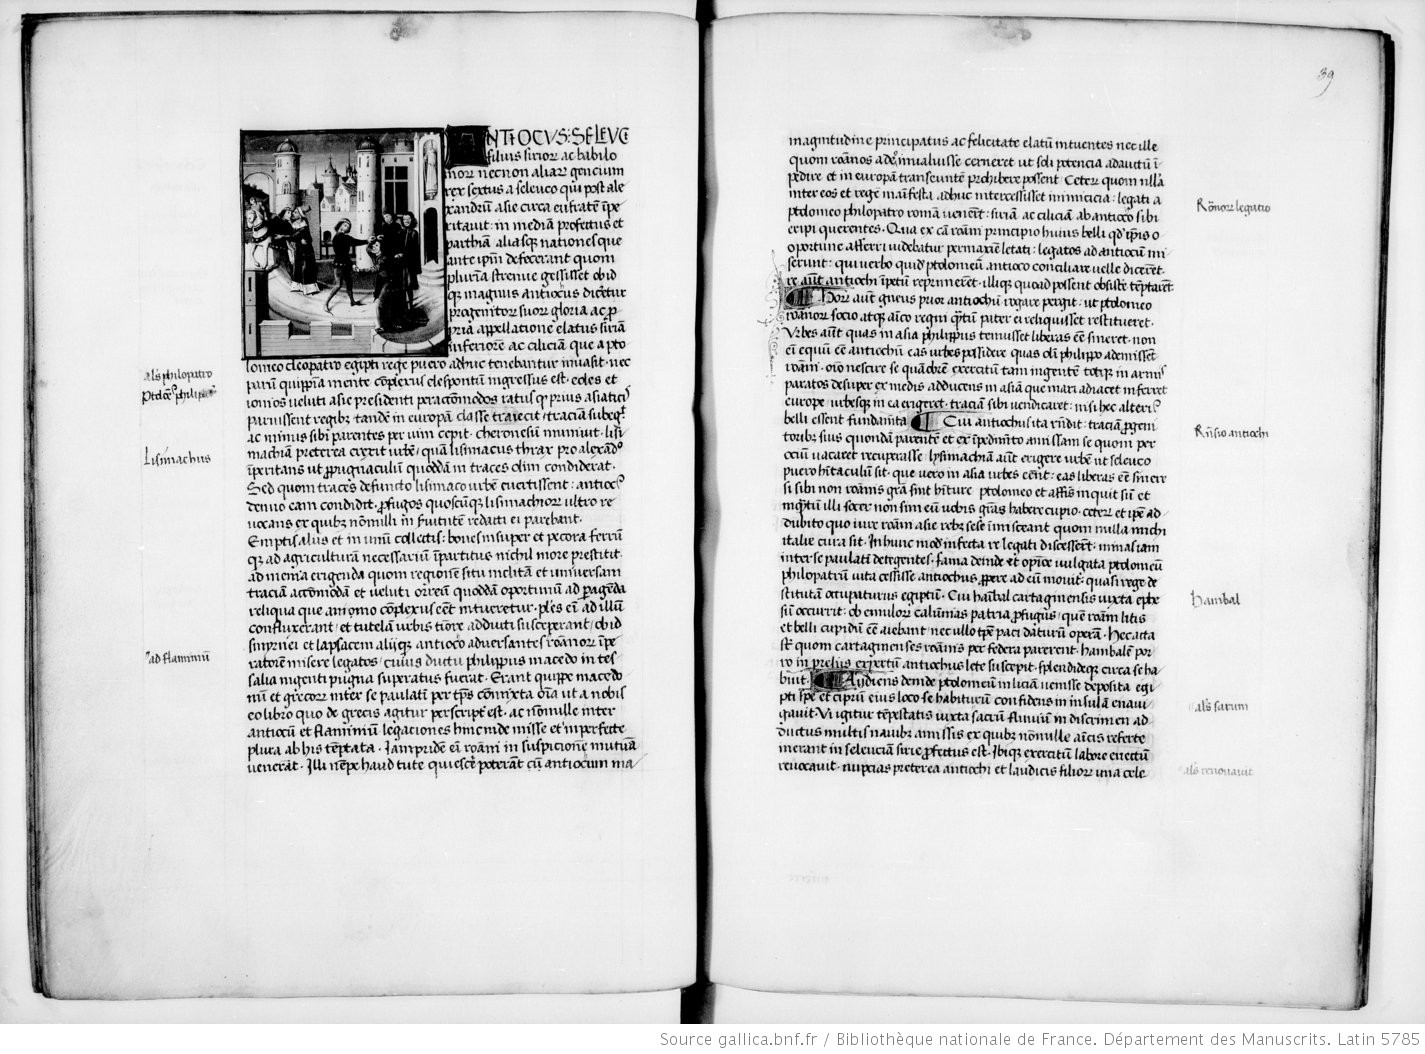 ANTIOCVS: SELEVCI
filius sirior ac babilo
nior necnon aliar gencium
rex sextus a seleuco qui post ale
xandrum asie circa eufratem ipe
ritauit: in mediam profectus et
parthiam aliasq nationes que
ante ipm defecerant quom
plurima strenue gessisset obid
q magnus antiocus diceretur
progenitor suor gloria ac p
pria appellatione elatus siriam
inferiorem ac ciliciam que a pto
lomeo cleopatro egipti rege puero adhuc tenebantur inuasit. nec
parum quippiam mente complexus elespontum ingressus est. eoles et
ionios ueluti asie presidenti peraccomodos ratus q prius asiatici
paruissent regibus tandem in europam classe traiecit. traciam subegit
ac minus sibi parentes per uim cepit. cheronesum muniuit. lisi
machiam preterea erexit urbem. quam lisimacus thrax pro alexandro
imperitans ut propugnaculum quoddam in traces olim condiderat.
Sed quom traces defuncto lisimaco urbem euertissent: antiocus
denuo eam condidit. profugos quoscumq lisimachior ultro re
uocans ex quibus nonnulli in seruitutem redacti ei parebant.
Emptis alus et in unum collectis: boues insuper et pecora ferrum
q ad agriculturam necessarium impartitus nichil more prestitit.
ad menia erigenda quom regionem situ melitam et uniuersam
traciam accomodam et ueluti orreum quoddam oportunum ad peragenda
reliqua que animo complexus erat intueretur. ples enim ad illum
confluxerant et tutelam urbis timore adducti susceperant. obid
smyrnei et lapsaceni aliiq antioco aduersantes romanor impe
ratorem misere legatos. cuius ductu philippus macedo in tes
salia ingenti pugna superatus fuerat. Erant quippe macedo
num et grecor inter se paulatim per tempus commixta omnia ut a nobis
eo libro quo de grecis agitur perscriptum est. ac nonnulle inter
antiocum et flaminium legaciones hincinde misse et imperfecte
plura ab his temptata. Jampridem enim romani in suspicionem mutuam
uenerat. Illi nempe haud tute quiescere poterant cum antiocum ma
als philopatro
Ptolomeo philip
Lisimachus
ad flaminium
39
magnitudine principatus ac felicitate elatum intuentes nec ille
quom romanos adeo inualuisse cerneret ut soli potencia aduictum i
pedire et in europam transeuntem prohibere possent. Ceterum quom nulla
inter eos et regem manifesta adhuc intercessisset inimicicia: legati a
ptolomeo philopatro romam uenerunt: siriam ac ciliciam ab antioco sibi
eripi querentes. Qua ex causa romani principio huius belli quod ipsis o
oportune afferri uidebatur permaxime letati: legatos ad antiocum mi
serunt: qui uerbo quidem ptolomeum antioco conciliare uelle dicerent.
re autem antiochi impetum reprimerent. illiq quoad possent obsistere temptarent.
Hor autem gneus prior antiochum rogare pergit: ut ptolomeo
romanor socio atq amico regni quantum pater ei reliquisset restitueret.
Vrbes autem quas in asia philippus tenuisset liberas esse sineret. non
enim equum esse antiochum eas urbes possidere quas olim philippo ademissent
romani. omnino nescire se quamobrem exercitum tam ingentem totque in armis
paratos desuper ex medis adducens in asiam que mari adiacet inferret
europe. urbesque in ea erigeret. traciam sibi uendicaret: nisi hec alterius
belli essent fundamenta Cui antiochus ita respondit: traciam progeni
toribus suis quondam parentem et ex impedimento amissam se quom per
ocium uacaret recuperasse. lysimachiam autem erigere urbem ut seleuco
puero habitaculum sit. que uero in asia urbes essent: eas liberas esse sinere
si sibi non romanis gratiam sint habiture ptolomeo et affinis inquit sum et
inuitum illi socer non sim eum uobis gratias habere cupio. ceterum et ipse ad
dubito quo iure romani asie rebus sese inmisceant quom nulla michi
italie cura sit. In hunc modum infecta re legati discesserunt. minas iam
inter se paulatim detergentes. fama deinde et opinione uulgata ptolomeum
philopatrum uita cessisse antiochus propere ad eum mouit: quasi rege de
stitutam occupaturus egiptum. Cui hanibal cartaginensis iuxta ephe
sum occurrit: ob emulor calumnias patria profugus: quem romani litis
et belli cupidum esse aiebant nec ullo tempore paci daturum operam. Hec acta
sunt quom cartaginenses romanis per federa parerent. Hanibalem por
ro in preliis expertum antiochus lete suscepit. splendideque circa se ha
buit. Audiens deinde ptolomeum in liciam uenisse deposita egi
pti spe et ciprum eius loco se habiturum confidens in insulam enaui
gauit. Vi igitur tempestatis iuxta sacrum fluuium in discrimen ad
ductus multis nauibus amissis ex quibus nonnulle amicis referte
inerant in seleuciam sirie profectus est. Ibique exercitum labore euectum
reuocauit. nupcias preterea antiochi et laudicis filior una cele
Romanor legatio
Responsio antiochi
Hanibal
als sarum
als renouauit
Source gallica.bnf.fr / Bibliothèque nationale de France. Département des Manuscrits. Latin 5785